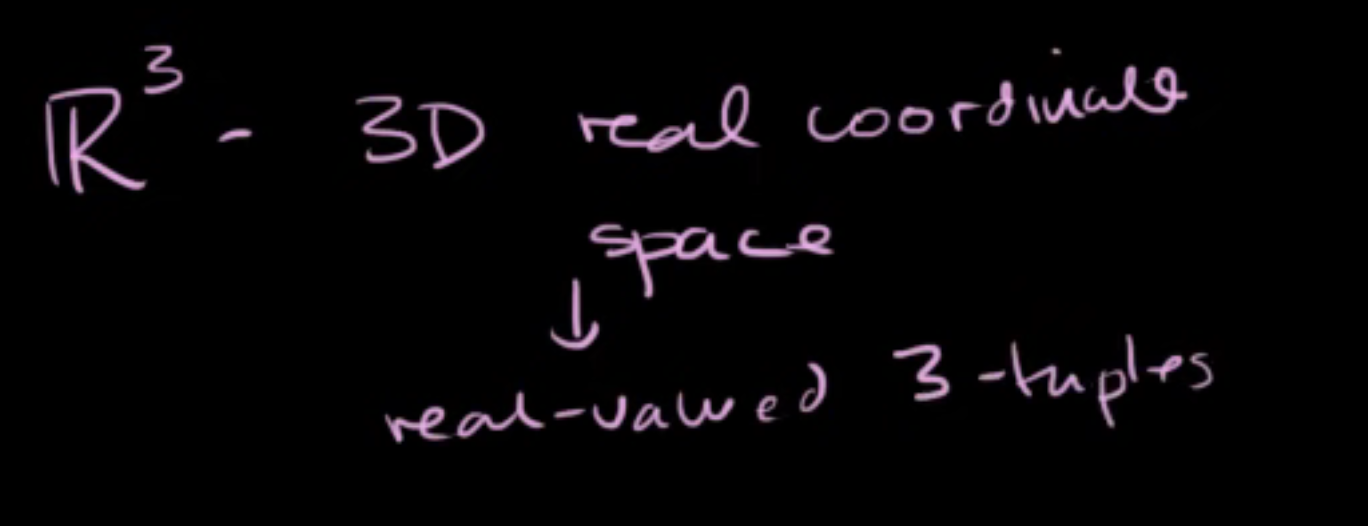 ℝ³ - 3D real coordinate
space
↓
real-valued 3-tuples